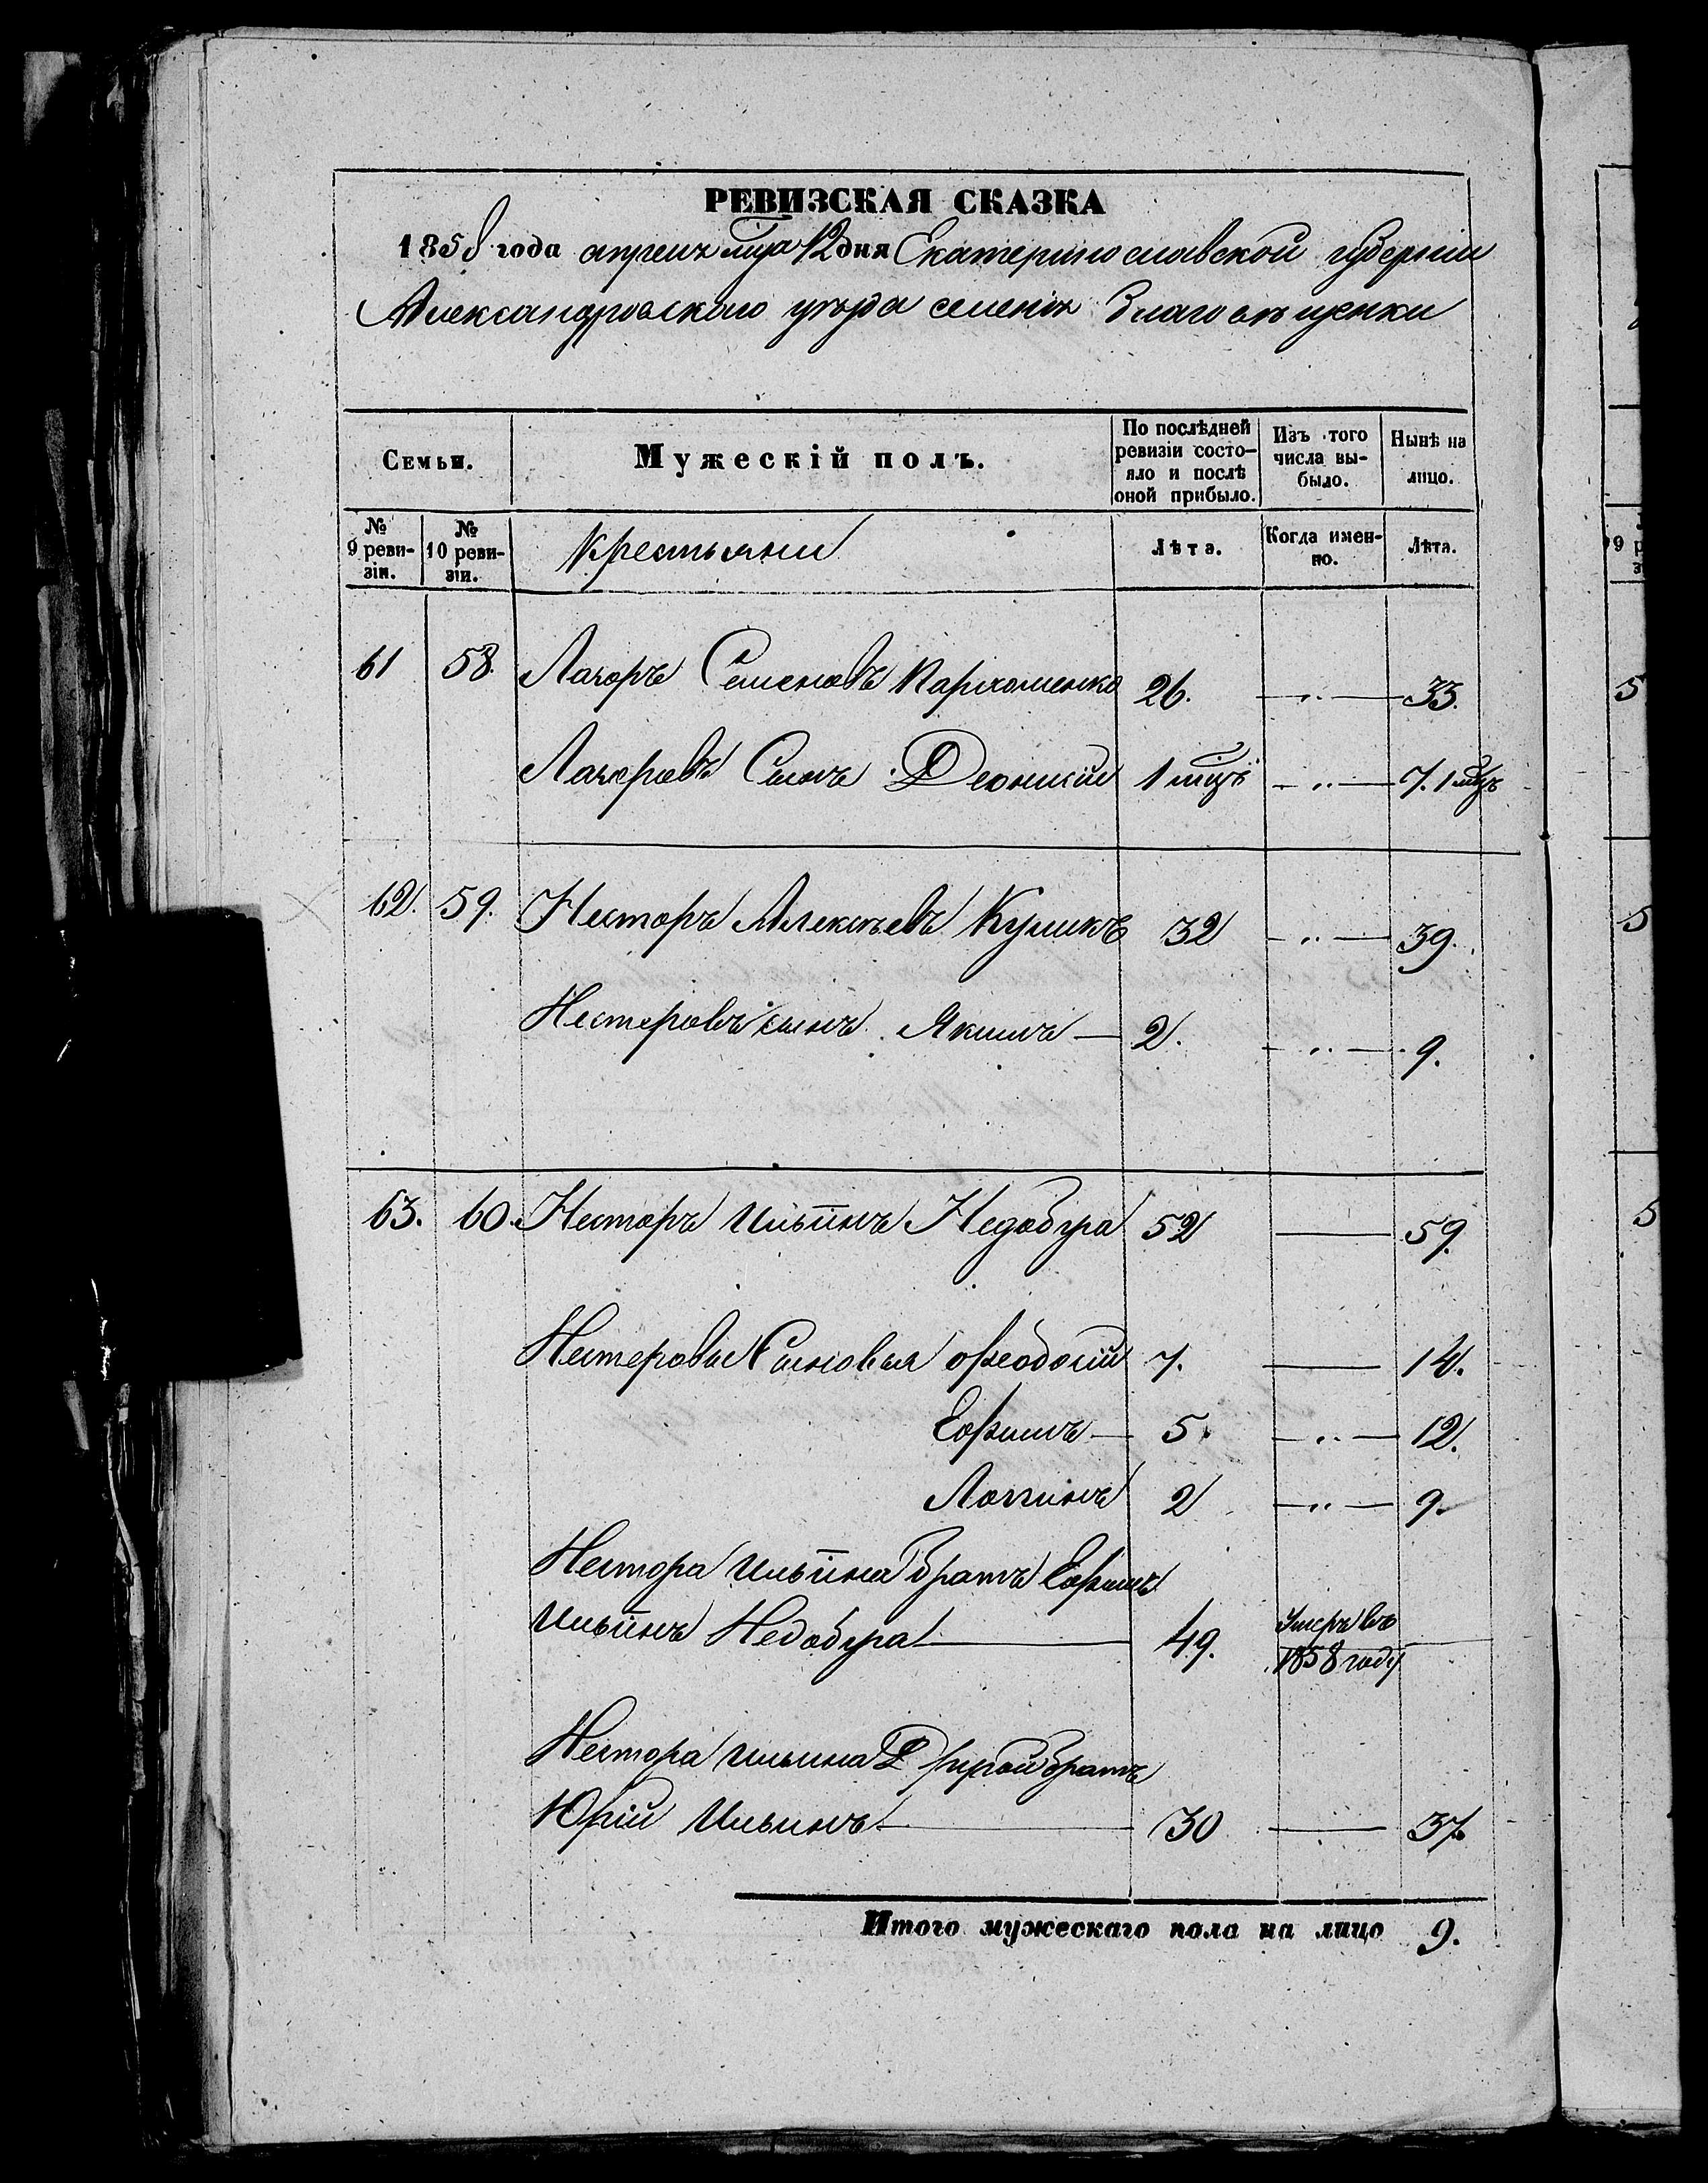 РЕВИЗСКАЯ СКАЗКА
1858 года апреля мца 12 дня Екатеринославской губернии
Александровского уезда селения Благовещенки
Семьи. Мужескій полъ. По послѣдней ревизіи состояло и послѣ оной прибыло. Изъ того числа выбыло. Нынѣ на лицо.
№ 9 ревизіи. № 10 ревизіи. Крестьяни Лѣта. Когда именно. Лѣта.
61 58. Лазоръ Семеновъ Пархоменко 26. —„— 33.
Лазоревъ Сынъ Деонисій 1 мцъ —„— 7. 1 мцъ
62. 59. Несторъ Алексѣевъ Куликъ 32 —„— 39.
Нестеровъ сынъ Якимъ — 2. —„— 9.
63. 60. Несторъ Ильинъ Недобура 52 — 59.
Нестеровы Сыновья Феодосій 7. — 14.
Ефимъ — 5. —„— 12.
Логинъ 2 —„— 9.
Нестора Ильина братъ Ефимъ
Ильинъ Недобура — 49. Умеръ въ 1858 году
Нестора Ильина Другой братъ
Юрій Ильинъ — 30 — 37.
Итого мужескаго пола на лицо 9.